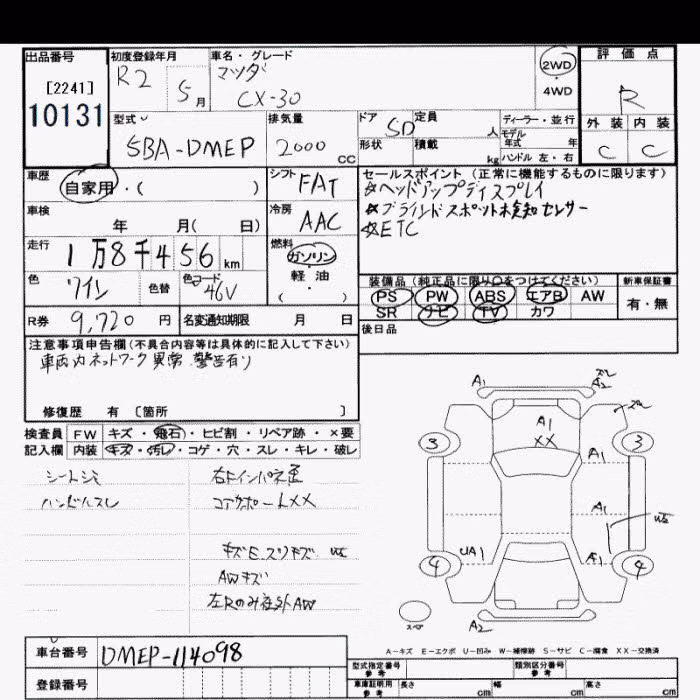 出品番号
[2241]
10131
初度登録年月
R2 5月
車名・グレード
マツダ
CX-30
2WD
・
4WD
評価点
R
外装 内装
C C
型式
5BA-DMEP
排気量
2000 CC
ドア 5D
形状
定員 人
積載 kg
ディーラー・並行
モデル年式 年
ハンドル 左・右
車歴
自家用・( )
シフト FAT
車検
年 月( 日)
冷房 AAC
走行
1万8千456 km
燃料
ガソリン
・
軽・油
・
( )
色 ワイン 色替 色コード 46V
R券 9,720 円 名変通知期限 月 日
セールスポイント (正常に機能するものに限ります)
☆ヘッドアップディスプレイ
☆ブラインドスポット検知センサー
☆ETC
装備品 (純正品に限り○をつけてください)
PS PW ABS エアB AW
SR ナビ TV カワ
新車保証書
有・無
後日品
注意事項申告欄 (不具合内容等は具体的に記入して下さい)
車両内ネットワーク異常 警告有り
修復歴 有 [箇所 ]
検査員記入欄
FW キズ・飛石・ヒビ割・リペア跡・×要
内装 キズ・汚レ・コゲ・穴・スレ・キレ・破レ
シートシミ
ハンドルスレ
右Fインパネ歪
コアサポートXX
キズE、スリキズ
AWキズ
左Rのみ社外AW
A1
A2
A1
XX
3
3
A1
A1
UA1
A1
4
4
A2
A-キズ E-エクボ U-凹み W-補修跡 S-サビ C-腐食 XX-交換済
車台番号 DMEP-114098
登録番号
型式指定番号 参考
類別区分番号 参考
車庫証明用 参考 長さ cm 幅 cm 高さ cm